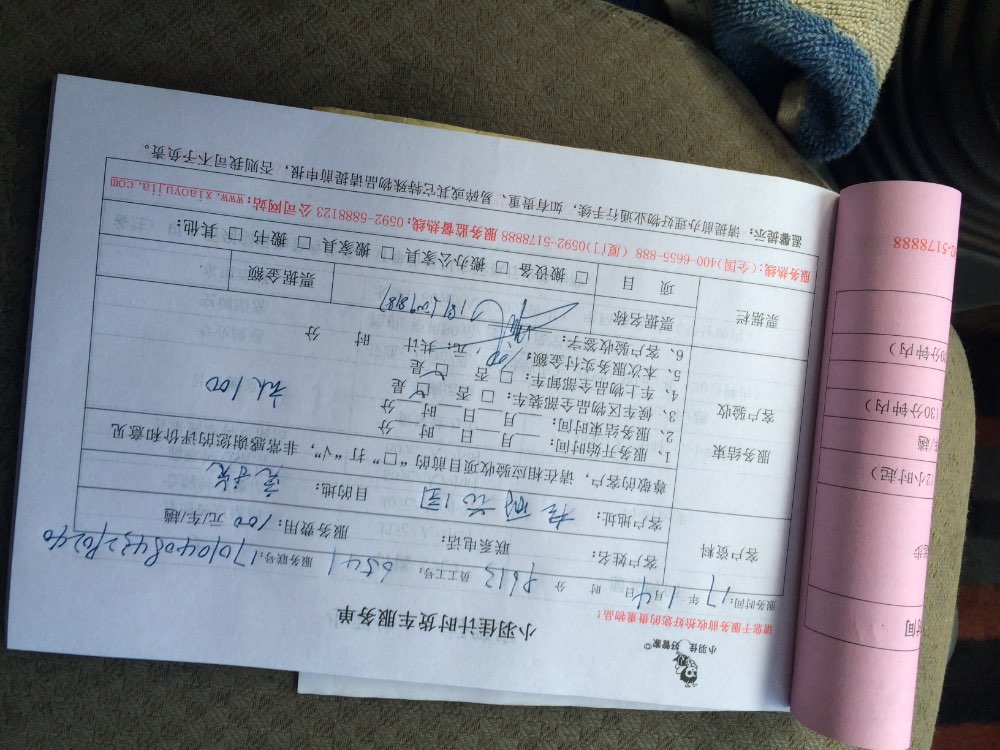 小羽佳 好管家
小羽佳计时货车服务单
请您于服务前收拾好您的贵重物品！
服务时间：17年1月4日 时 分 员工工号：6541 服务联号：
客户资料
客户姓名： 联系电话： 服务费用：100元/车/趟
客户地址： 目的地：
尊敬的客户，请在相应验收项目前的“□”打“√”，非常感谢您的评价和意见
服务结束
客户验收
1、服务开始时间： 月 日 时 分
2、服务结束时间： 月 日 时 分
3、候车区物品全部装车：□是 □否
4、车上物品全部卸车：□是 □否
5、本次服务实付金额：100元；共计 时 分
6、客户验收签字：
100
票据栏
票据名称
票据金额
项 目
□搬设备 □搬办公家具 □搬家具 □搬书 □其他：
服务热线：(全国)400-6655-888 (厦门)0592-5178888 服务监督热线：0592-5888123 公司网站：www.xiaoyujia.com
温馨提示：请提前办理好物业通行手续，如有贵重、易碎或其它特殊物品请提前申报，否则我司不予负责。
时间
(30分钟内)
-5178888